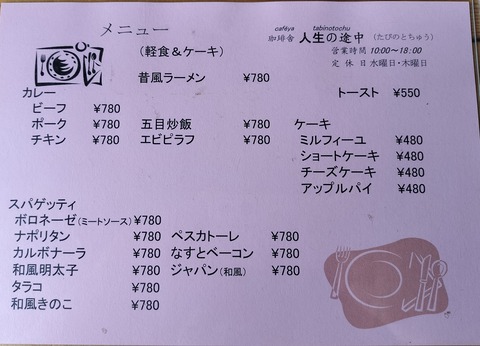 メニュー
caféya tabinotochu
珈琲舎 人生の途中 (たびのとちゅう)
(軽食&ケーキ)
営業時間 10:00~18:00
定 休 日 水曜日・木曜日
昔風ラーメン ¥780
カレー
ビーフ ¥780
ポーク ¥780
チキン ¥780
五目炒飯 ¥780
エビピラフ ¥780
トースト ¥550
ケーキ
ミルフィーユ ¥480
ショートケーキ ¥480
チーズケーキ ¥480
アップルパイ ¥480
スパゲッティ
ボロネーゼ(ミートソース) ¥780
ナポリタン ¥780
カルボナーラ ¥780
和風明太子 ¥780
タラコ ¥780
和風きのこ ¥780
ペスカトーレ ¥780
なすとベーコン ¥780
ジャパン(和風) ¥780